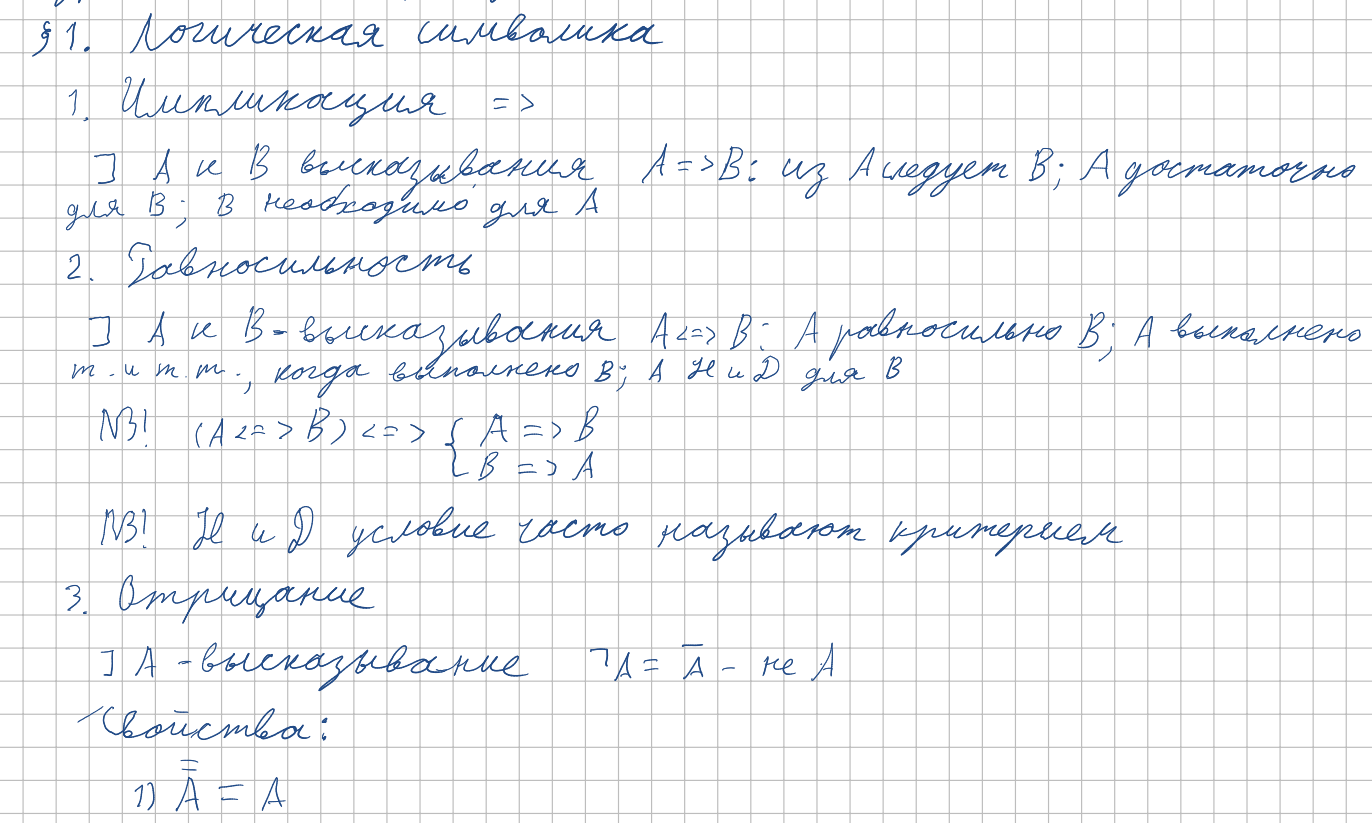 §1. Логическая символика
1. Импликация =>
] A и B высказывания A => B: из A следует B; A достаточно
для B; B необходимо для A
2. Равносильность
] A и B - высказывания A <=> B: A равносильно B; A выполнено
т. и т. т., когда выполнено B; A Н и Д для B
NB! (A <=> B) <=> { A => B
B => A
NB! Н и Д условие часто называют критерием
3. Отрицание
] A - высказывание ¬A = A̅ - не A
Свойства:
1) A̿ = A